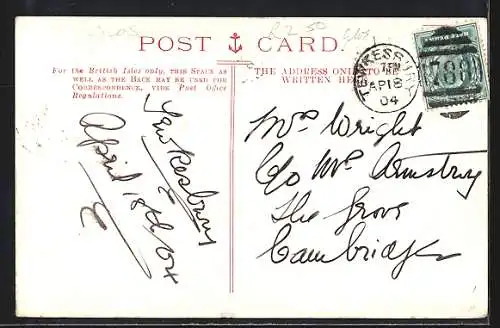 POST CARD.
For the British Isles only, THIS SPACE AS
WELL AS THE BACK MAY BE USED FOR
CORRESPONDENCE, VIDE Post Office
Regulations.
THE ADDRESS ONLY TO BE
WRITTEN HERE
TEWKESBURY
AP 18
04
788
Tewkesbury
April 18th 04
E
Mrs Wright
C/o Mrs Armstrong
The Grove
Cambridge